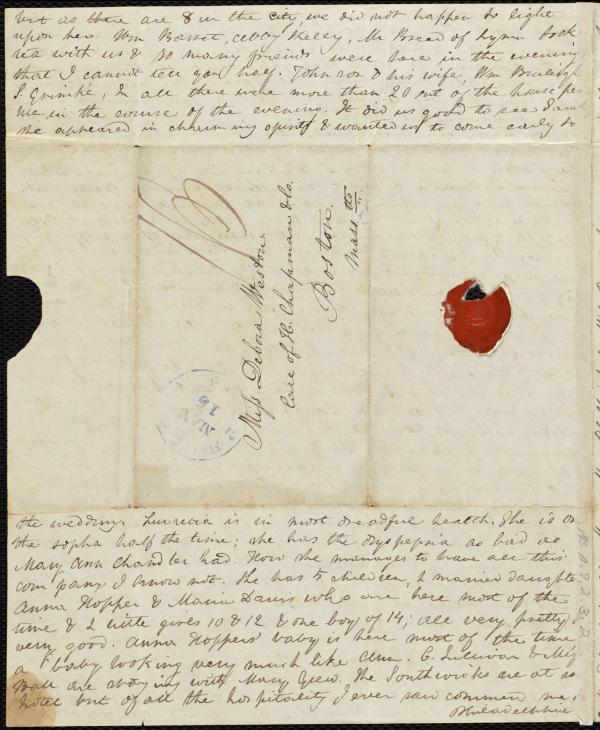 but as there are 8 in the city, we did not happen to light
upon her. Wm Bassett, Abby Kelly, Mr Breed of Lynn took
tea with us & so many friends were here in the evening
that I cannot tell you half. Johnson & his wife, Wm Burleigh
S. Grimké, In all there were more than 20 out of the house
in the course of the evening. It did us good to see
she appeared in charming spirits & wanted us to come early to
Miss Debora Weston.
Care of H. Chapman & Co.
Boston.
Mass tts
MAY
16
the wedding. Lucretia is in most dreadful health. She is on
the sopha half the time; she has the dyspepsia as bad as
Mary Ann Chandler had. How she manages to have all this
company I know not. She has 5 children, 2 married daughters
Anna Hopper & Maria Davis who are here most of the
time & 2 little girls 10 & 12 & one boy of 14; all very pretty
very good. Anna Hoppers' baby is here most of the time
a baby looking very much like Ann. C. Sullivan & Miss
Ball are staying with Mary Grew. The Southwicks are at a
hotel but of all the hospitality I ever saw commend me
Philadelphia